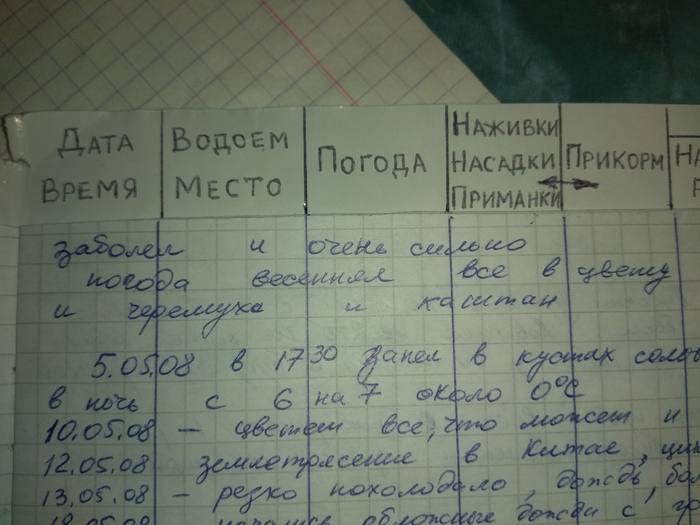 ДАТА ВРЕМЯ
ВОДОЕМ МЕСТО
ПОГОДА
НАЖИВКИ НАСАДКИ ПРИМАНКИ
ПРИКОРМ
заболел и очень сильно
погода весенняя все в цвету
и черемуха и каштан
5.05.08 в 17 30 запел в кустах
в ночь с 6 на 7 около 0°C
10.05.08 – цветет все, что может и
12.05.08 землетрясение в Китае,
13.05.08 – резко похолодало, дождь,
обложные дожди с